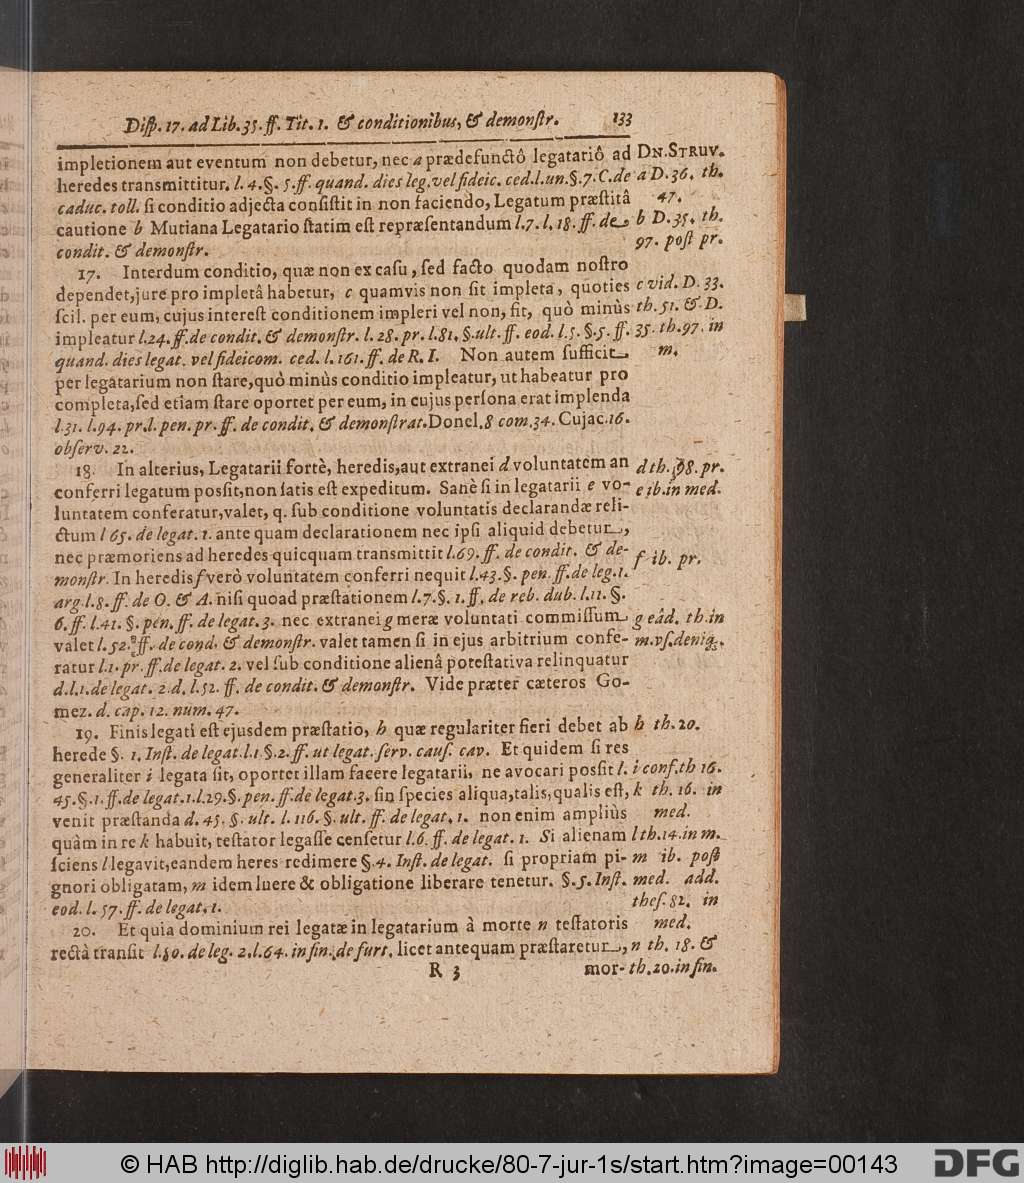 Disp. 17. ad Lib. 35. ff. Tit. 1. & conditionibus, & demonstr. 133
impletionem aut eventum non debetur, nec a prædefunctô legatariô ad
heredes transmittitur. l. 4. §. 5. ff. quand. dies leg. vel fideic. ced. l. un. §. 7. C. de
caduc. toll. si conditio adjecta consistit in non faciendo, Legatum præstitâ
cautione b Mutiana Legatario statim est repræsentandum l. 7. l. 18. ff. de
condit. & demonstr.
17. Interdum conditio, quæ non ex casu, sed facto quodam nostro
dependet, jure pro impletâ habetur, c quamvis non sit impleta, quoties
scil. per eum, cujus interest conditionem impleri vel non, fit, quò minùs
impleatur l. 24. ff. de condit. & demonstr. l. 28. pr. l. 81. §. ult. ff. eod. l. 5. §. 5. ff.
quand. dies legat. vel fideicom. ced. l. 161. ff. de R. I. Non autem sufficit
per legatarium non stare, quò minùs conditio impleatur, ut habeatur pro
completa, sed etiam stare oportet per eum, in cujus persona erat implenda
l. 31. l. 94. pr. l. pen. pr. ff. de condit. & demonstrat. Donel. 8 com. 34. Cujac. 16.
observ. 22.
18. In alterius, Legatarii fortè, heredis, aut extranei d voluntatem an
conferri legatum possit, non satis est expeditum. Sanè si in legatarii e vo-
luntatem conferatur, valet, q. sub conditione voluntatis declarandæ reli-
ctum l 65. de legat. 1. ante quam declarationem nec ipsi aliquid debetur,
nec præmoriens ad heredes quicquam transmittit l. 69. ff. de condit. & de-
monstr. In heredis f verò voluntatem conferri nequit l. 43. §. pen. ff. de leg. 1.
arg l. 8. ff. de O. & A. nisi quoad præstationem l. 7. §. 1. ff. de reb. dub. l. 11. §.
6. ff. l. 41. §. pen. ff. de legat. 3. nec extranei g meræ voluntati commissum
valet l. 52. ff. de cond. & demonstr. valet tamen si in ejus arbitrium confe-
ratur l. 1. pr. ff. de legat. 2. vel sub conditione alienâ potestativa relinquatur
d. l. 1. de legat. 2 d. l. 52. ff. de condit. & demonstr. Vide præter cæteros Go-
mez. d. cap. 12. num. 47.
19. Finis legati est ejusdem præstatio, h quæ regulariter fieri debet ab
herede §. 1. Inst. de legat. l. 1 §. 2. ff. ut legat. serv. caus. cav. Et quidem si res
generaliter i legata sit, oportet illam facere legatarii, ne avocari possit l.
45. §. 1. ff. de legat. 1. l. 29. §. pen. ff. de legat. 3. sin species aliqua, talis, qualis est,
venit præstanda d. 45. §. ult. l. 116. §. ult. ff. de legat. 1. non enim ampliùs
quàm in re k habuit, testator legasse censetur l. 6. ff. de legat. 1. Si alienam
sciens l legavit, eandem heres redimere §. 4. Inst. de legat. si propriam pi-
gnori obligatam, m idem luere & obligatione liberare tenetur. §. 5. Inst.
eod. l. 57. ff. de legat. 1.
20. Et quia dominium rei legatæ in legatarium à morte n testatoris
rectà transit l. 80. de leg. 2. l. 64. in fin. de furt. licet antequam præstaretur,
R 3 mor-
DN. STRUV.
a D. 36. th.
47.
b D. 35. th.
97. post pr.
c vid. D. 33.
th. 51. & D.
35. th. 97. in
m.
d th. 98. pr.
e ib. in med.
f ib. pr.
g eâd. th. in
m. vs. deniq;.
h th. 20.
i conf. th 16.
k th. 16. in
med.
l th. 14. in m.
m ib. post
med. add.
thes. 82. in
med.
n th. 18. &
th. 20. in fin.
© HAB http://diglib.hab.de/drucke/80-7-jur-1s/start.htm?image=00143
DFG